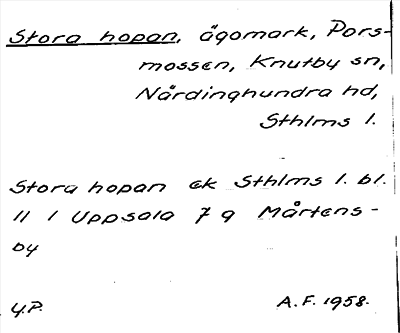 Stora hopan, ägomark, Pors-
mossen, Knutby sn,
Närdinghundra hd,
Sthlms l.
Stora hopan ek Sthlms l. bl.
11 l Uppsala 7 9 Mårtens-
by
Y.P. A.F. 1958.